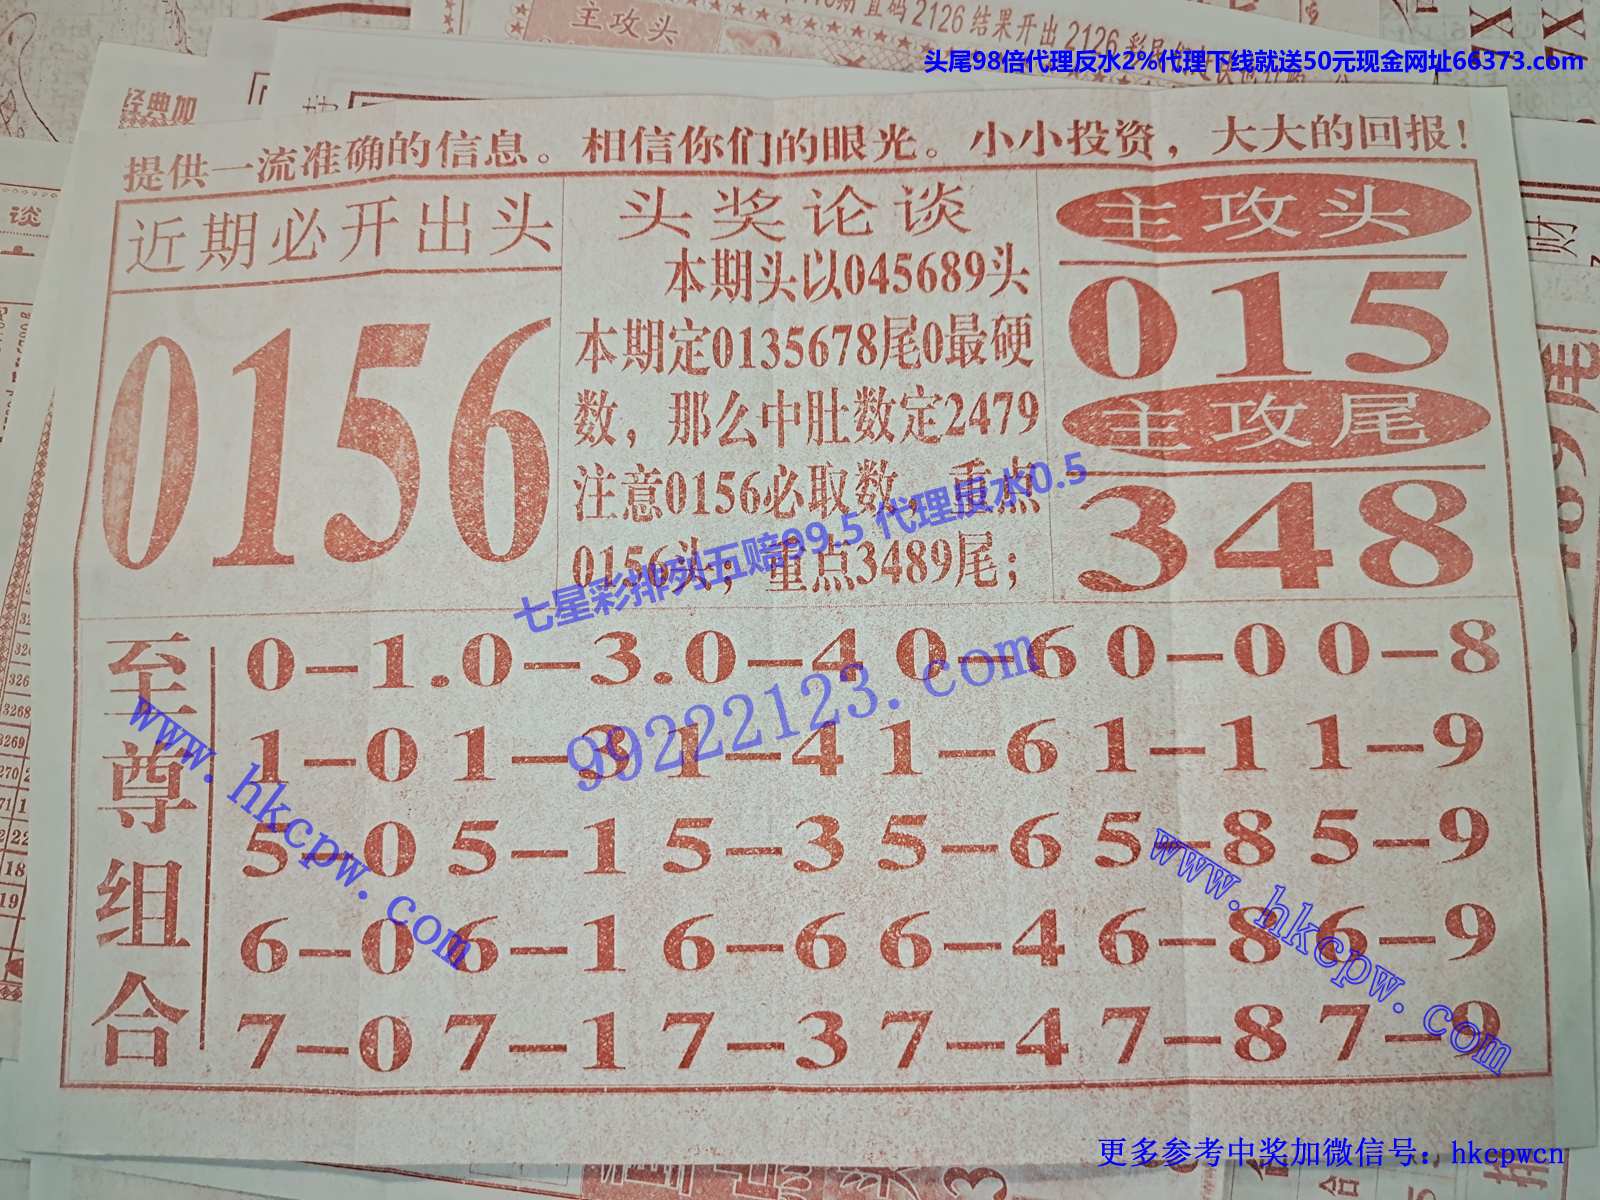 主攻头
直码2126结果开出2126
头尾98倍代理反水2%代理下线就送50元现金网址66373.com
提供一流准确的信息。相信你们的眼光。小小投资，大大的回报！
近期必开出头
0156
头奖论谈
本期头以045689头
本期定0135678尾0最硬
数，那么中肚数定2479
注意0156必取数，重点
0156头；重点3489尾；
主攻头
015
主攻尾
348
七星彩排列五赔99.5 代理反水0.5
至尊组合
0-1.0-3.0-4 0-6 0-0 0-8
1-0 1-3 1-4 1-6 1-1 1-9
5-0 5-1 5-3 5-6 5-8 5-9
6-0 6-1 6-6 6-4 6-8 6-9
7-0 7-1 7-3 7-4 7-8 7-9
99222123.com
www.hkcpw.com
www.hkcpw.com
更多参考中奖加微信号：hkcpwcn